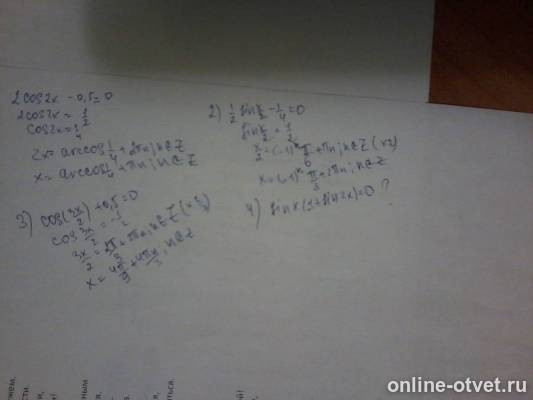 2cos2x - 0,5 = 0
2cos2x = 1/2
cos2x = 1/4
2x = arccos 1/4 + 2πn; n∈Z
x = arccos 1/4 + πn; n∈Z
2) 1/2 sin x/2 - 1/4 = 0
sin x/2 = 1/2
x/2 = (-1)^n π/6 + πn; n∈Z (x2)
x = (-1)^n π/3 + 2πn; n∈Z
3) cos(3x/2) + 0,5 = 0
cos 3x/2 = -1/2
3x/2 = 2π/3 + 2πn; n∈Z
x = 4π/9 + 4πn/3; n∈Z
4) sin x (1 + sin 2x) = 0 ?
online-otvet.ru